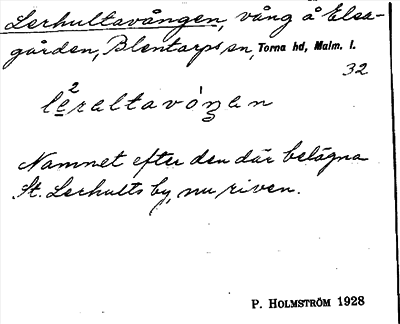 Lerhultavången, vång å Elsa-
gården, Blentarps sn, Torna hd, Malm. l.
32
Namnet efter den där belägna
St. Lerhults by, nu riven.
P. HOLMSTRÖM 1928